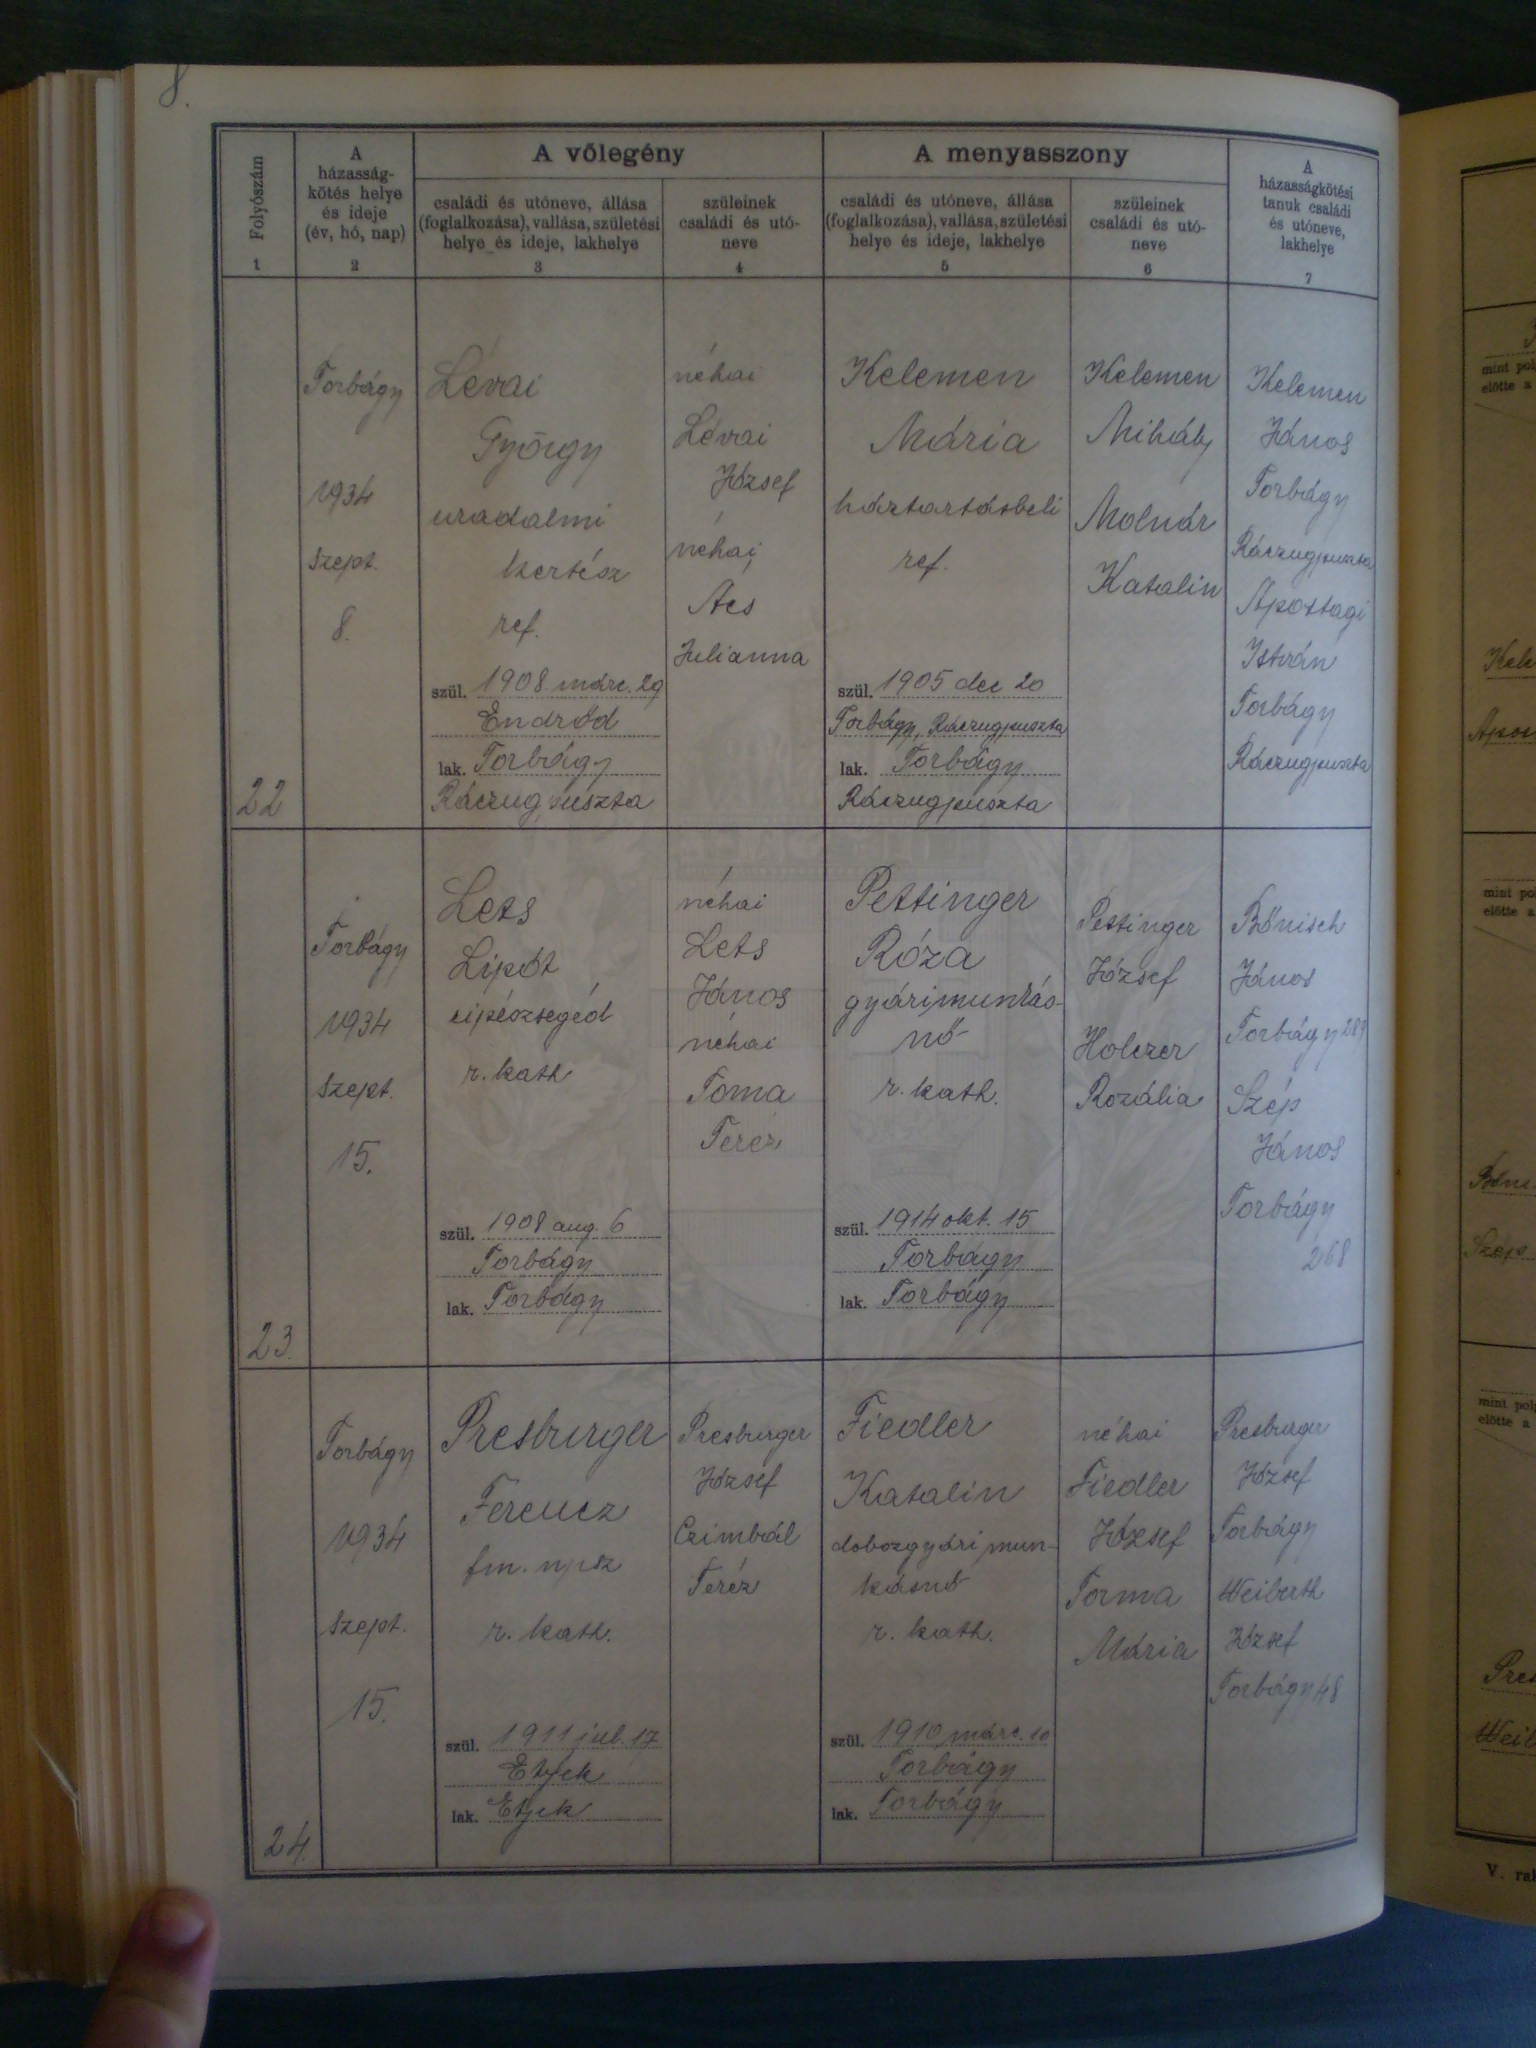 8.
Folyószám
1
A
házasság-
kötés helye
és ideje
(év, hó, nap)
2
A vőlegény
családi és utóneve, állása
(foglalkozása), vallása, születési
helye és ideje, lakhelye
3
szüleinek
családi és utó-
neve
4
A menyasszony
családi és utóneve, állása
(foglalkozása), vallása, születési
helye és ideje, lakhelye
5
szüleinek
családi és utó-
neve
6
A
házasságkötési
tanuk családi
és utóneve,
lakhelye
7
22
Torbágy
1934
szept.
8.
Lévai
György
uradalmi
kertész
ref.
szül. 1908 márc. 29
Endrőd
lak. Torbágy
Ráczugpuszta
néhai
Lévai
József
néhai
Ács
Julianna
Kelemen
Mária
háztartásbeli
ref.
szül. 1905 dec 20
Torbágy, Ráczugpuszta
lak. Torbágy
Ráczugpuszta
Kelemen
Mihály
Molnár
Katalin
Kelemen
János
Torbágy
Ráczugpuszta
Apostagi
István
Torbágy
Ráczugpuszta
23.
Torbágy
1934
szept.
15.
Lets
Lipót
cipészsegéd
r. kath
szül. 1908 aug. 6
Torbágy
lak. Torbágy
néhai
Lets
János
néhai
Toma
Teréz
Pettinger
Róza
gyárimunkás-
nő
r. kath.
szül. 1914 okt. 15
Torbágy
lak. Torbágy
Pettinger
József
Holczer
Rozália
Bőnisch
János
Torbágy
Szép
János
Torbágy
268
24.
Torbágy
1934
szept.
15.
Presburger
Ferencz
fm. npsz
r. kath.
szül. 1911 jul. 17
Etyek
lak. Etyek
Presburger
József
Czimbál
Teréz
Fiedler
Katalin
dobozgyári mun-
kásnő
r. kath.
szül. 1910 márc. 10
Torbágy
lak. Torbágy
néhai
Fiedler
József
Torma
Mária
Presburger
József
Torbágy
Weiberth
József
Torbágy 48
mint pol
előtte a
mint po
előtte a
mint pol
előtte a
V.